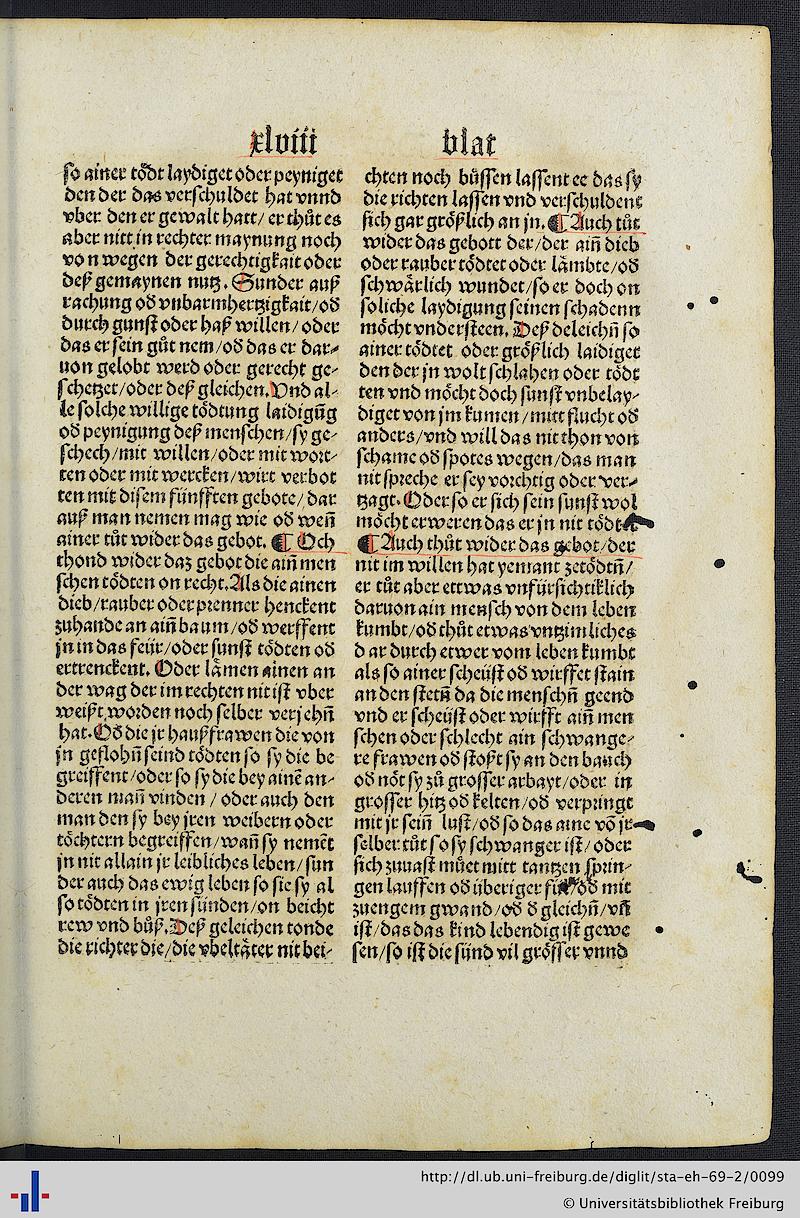 xlviii blat
so ainer tödt laydiget oder peyniget
den der das verschuldet hat vnnd
vber den er gewalt hatt/ er thůt es
aber nitt in rechter maynung noch
von wegen der gerechtigkait oder
deß gemaynen nutz. Sunder auß
rachung oď vnbarmhertzigkait/oď
durch gunst oder haß willen/ oder
das er sein gůt nem/oď das er dar⸗
uon gelobt werd oder gerecht ge⸗
schetzet/oder deß gleichen. Vnd al⸗
le solche willige tödtung laidigūg
oď peynigung deß menschen/sy ge⸗
schech/mit willen/oder mit wort⸗
ten oder mit wercken/wirt verbot
ten mit disem fünfften gebote/ dar
auß man nemen mag wie oď weñ
ainer tůt wider das gebot. ¶ Och
thond wider daz gebot die aiñ men
schen tödten on recht. Als die ainen
dieb/rauber oder prenner henckent
zuhande an aiñ baum/oď werffent
jn in das feür/oder sunst tödten oď
ertrenckent. Oder lämen ainen an
der wag der im rechten nit ist vber
weißt worden noch selber verjehñ
hat. Oď die jr haußfrawen die von
jn geflohñ seind tödten so sy die be
greiffent/oder so sy die bey ainē an⸗
deren mañ vinden / oder auch den
man den sy bey jren weibern oder
töchtern begreiffen/wañ sy nemēt
jn nit allain jr leibliches leben/sun
der auch das ewig leben so sie sy al
so tödten in jren sünden/on beicht
rew vnd bůß. Deß geleichen tonde
die richter die/die vbeltäter nit bei⸗
chten noch büssen lassent ee das sy
die richten lassen vnd verschuldent
sich gar größlich an jn. ¶ Auch tůt
wider das gebott der/der aiñ dieb
oder rauber tödtet oder lämbte/oď
schwärlich wundet/so er doch on
soliche laydigung seinen schadenn
möcht vndersteen. Deß deleichñ so
ainer tödtet oder größlich laidiget
den der jn wolt schlahen oder tödt
ten vnd möcht doch sunst vnbelay⸗
diget von jm kumen/mitt flucht oď
anders/vnd will das nit thon von
schame oď spotes wegen/das man
nit spreche er sey vorchtig oder ver⸗
tzagt. Oder so er sich sein sunst wol
möcht erweren das er jn nit tödt
¶ Auch thůt wider das gebot/der
nit im willen hat yemant zetödtñ/
er tůt aber ettwas vnfürsichtiklich
daruon ain mensch von dem leben
kumbt/oď thůt etwas vntzimliches
dar durch etwer vom leben kumbt
als so ainer scheüst oď wirffet stain
an den stetñ da die menschñ geend
vnd er scheüst oder wirfft aiñ men
schen oder schlecht ain schwange⸗
re frawen oď stoßt sy an den bauch
oď nöt sy zů grosser arbayt/oder in
grosser hitz oď kelten/oď verpringt
mit jr seiñ lust/oď so das aine vō jr
selber tůt so sy schwanger ist/ oder
sich zuuast müet mitt tantzen sprin⸗
gen lauffen oď überiger oď mit
zuengem gwand/oď ď gleichñ/vñ
ist/das das kind lebendig ist gewe
sen/so ist die sünd vil grösser vnnd
http://dl.ub.uni-freiburg.de/diglit/sta-eh-69-2/0099
© Universitätsbibliothek Freiburg